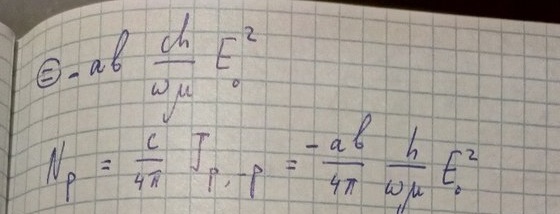 ⊜ - ab ch/ωμ E₀²
N_p = c/4π J_{p,-p} = -ab/4π h/ωμ E₀²